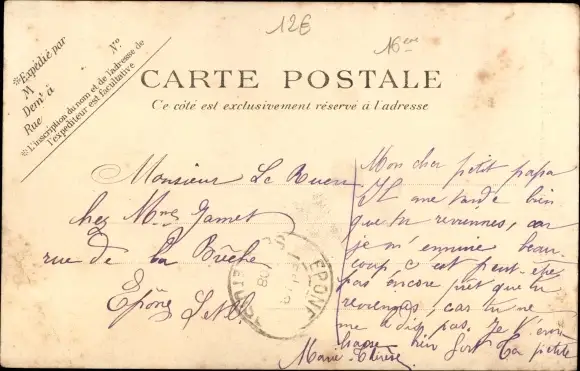 12€
16ème
※Expédié par
M N°
Demt à
Rue
※L'inscription du nom et de l'adresse de
l'expéditeur est facultative
CARTE POSTALE
Ce côté est exclusivement réservé à l'adresse
Monsieur Le
chez Mme Jamet
rue de la Brêche
Epône
EPÔNE
SEINE
08
Mon cher petit papa
Il me tarde bien
que tu reviennes, car
je m'ennuie beau-
coup c est peut-etre
pas encore prêt que tu
reviennes, car tu ne
me le dis pas. Je t'em
bien fort Ta petite
Marie-Thérèse